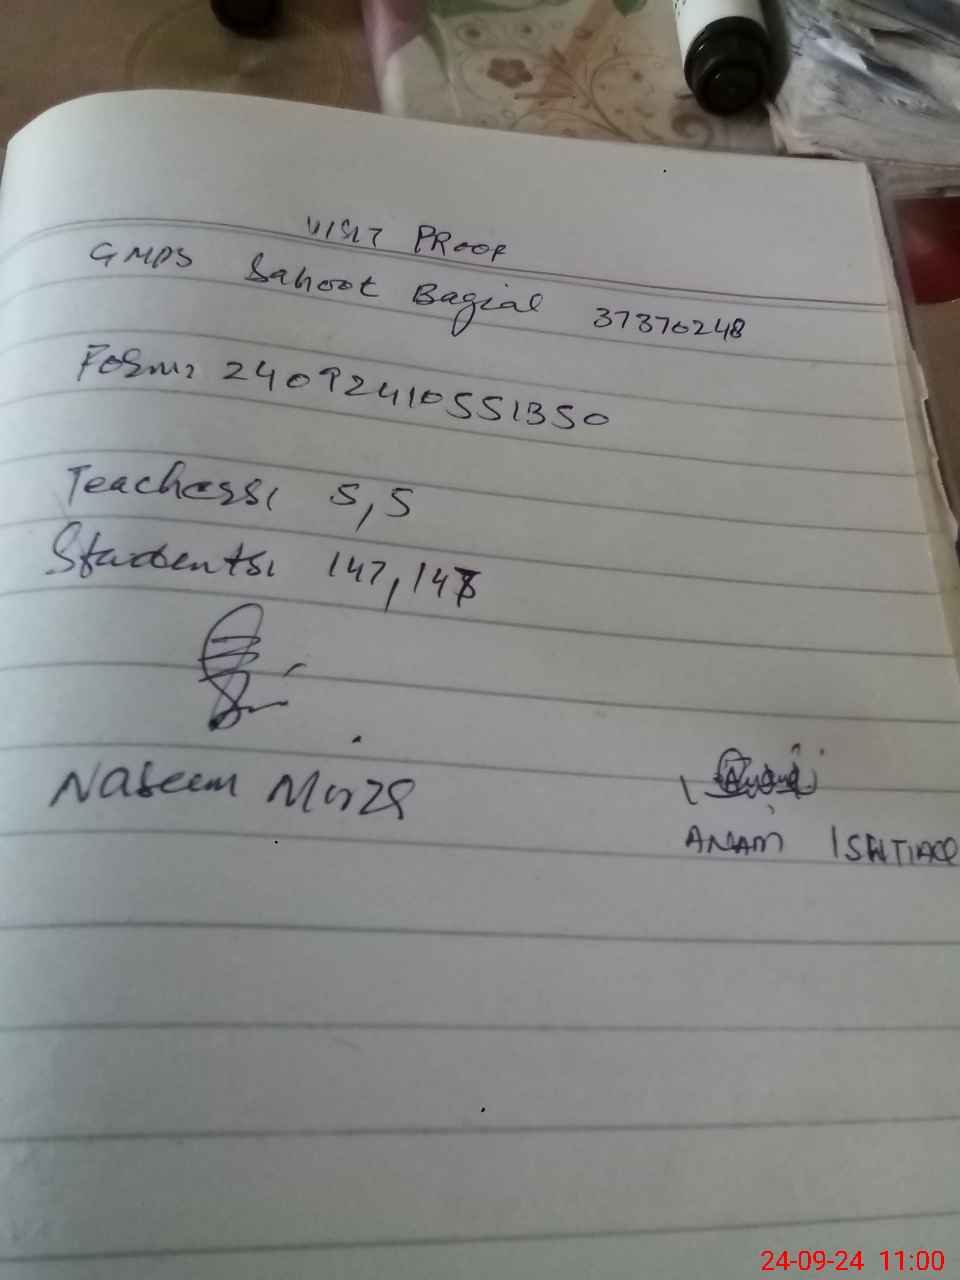 VISIT PROOF
GMPS Sahoot Bagial 37370248
Form: 24092410551350
Teachers: 5,5
Students: 147,147
Naseem Mirza
ANAM ISHTIAQ
24-09-24 11:00